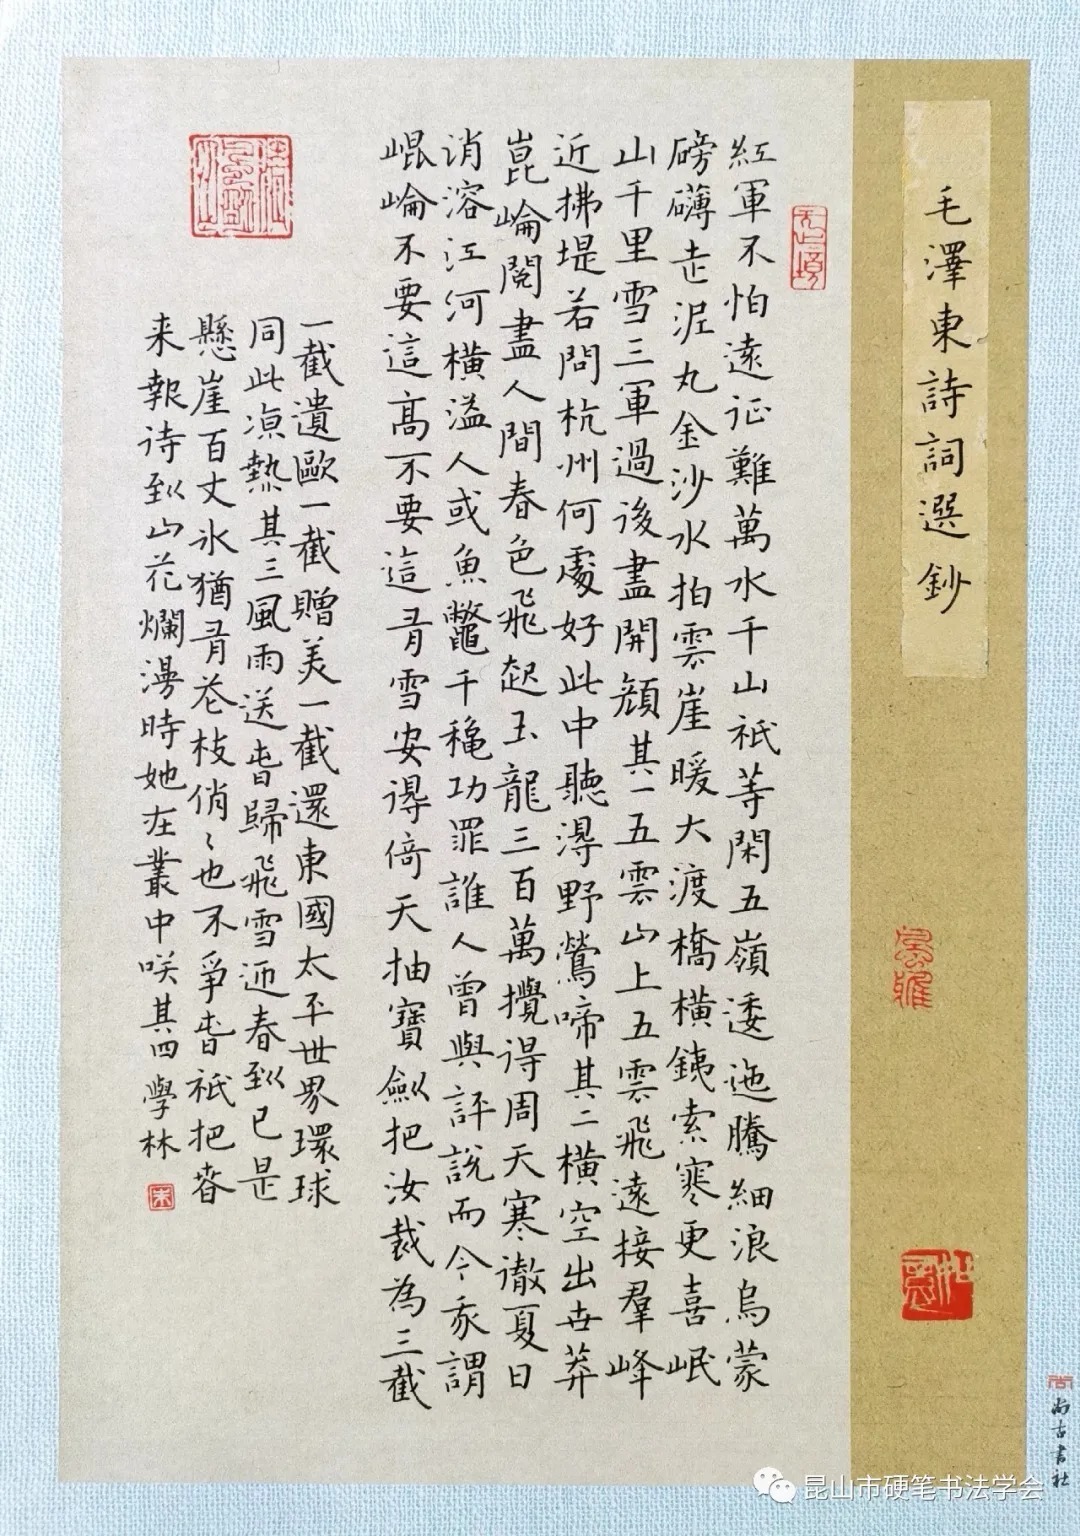 毛澤東詩詞選鈔
紅軍不怕遠征難萬水千山祇等閑五嶺逶迤騰細浪烏蒙
磅礴走泥丸金沙水拍雲崖暖大渡橋橫鐵索寒更喜岷
山千里雪三軍過後盡開顏其一五雲山上五雲飛遠接羣峰
近拂堤若問杭州何處好此中聽得野鶯啼其二橫空出世莽
崑崙閱盡人間春色飛起玉龍三百萬攪得周天寒徹夏日
消溶江河橫溢人或魚鱉千穐功罪誰人曾與評說而今我謂
崐崘不要這高不要這多雪安得倚天抽寶劍把汝裁為三截
一截遺歐一截贈美一截還東國太平世界環球
同此涼熱其三風雨送春歸飛雪迎春到已是
懸崖百丈冰猶有花枝俏〻也不爭春祇把春
来報待到山花爛漫時她在叢中咲其四學林
尚古書社
昆山市硬笔书法学会